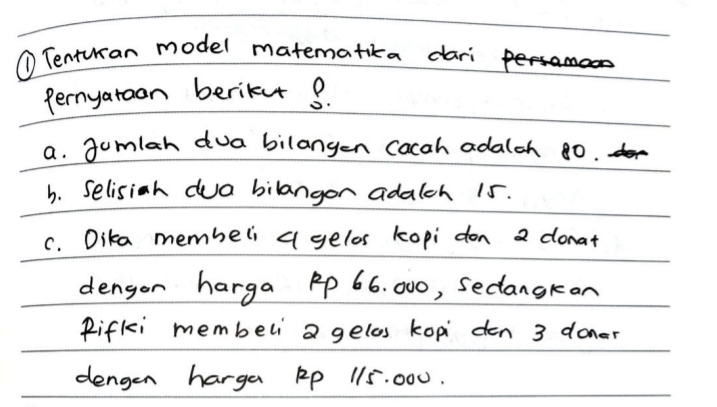 ① Tentukan model matematika dari persamaan
pernyataan berikut !
a. Jumlah dua bilangan cacah adalah 80. dan
b. Selisiah dua bilangan adalah 15.
c. Dika membeli 4 gelas kopi dan 2 donat
dengan harga Rp 66.000, sedangkan
Rifki membeli 2 gelas kopi dan 3 donat
dengan harga Rp 115.000.